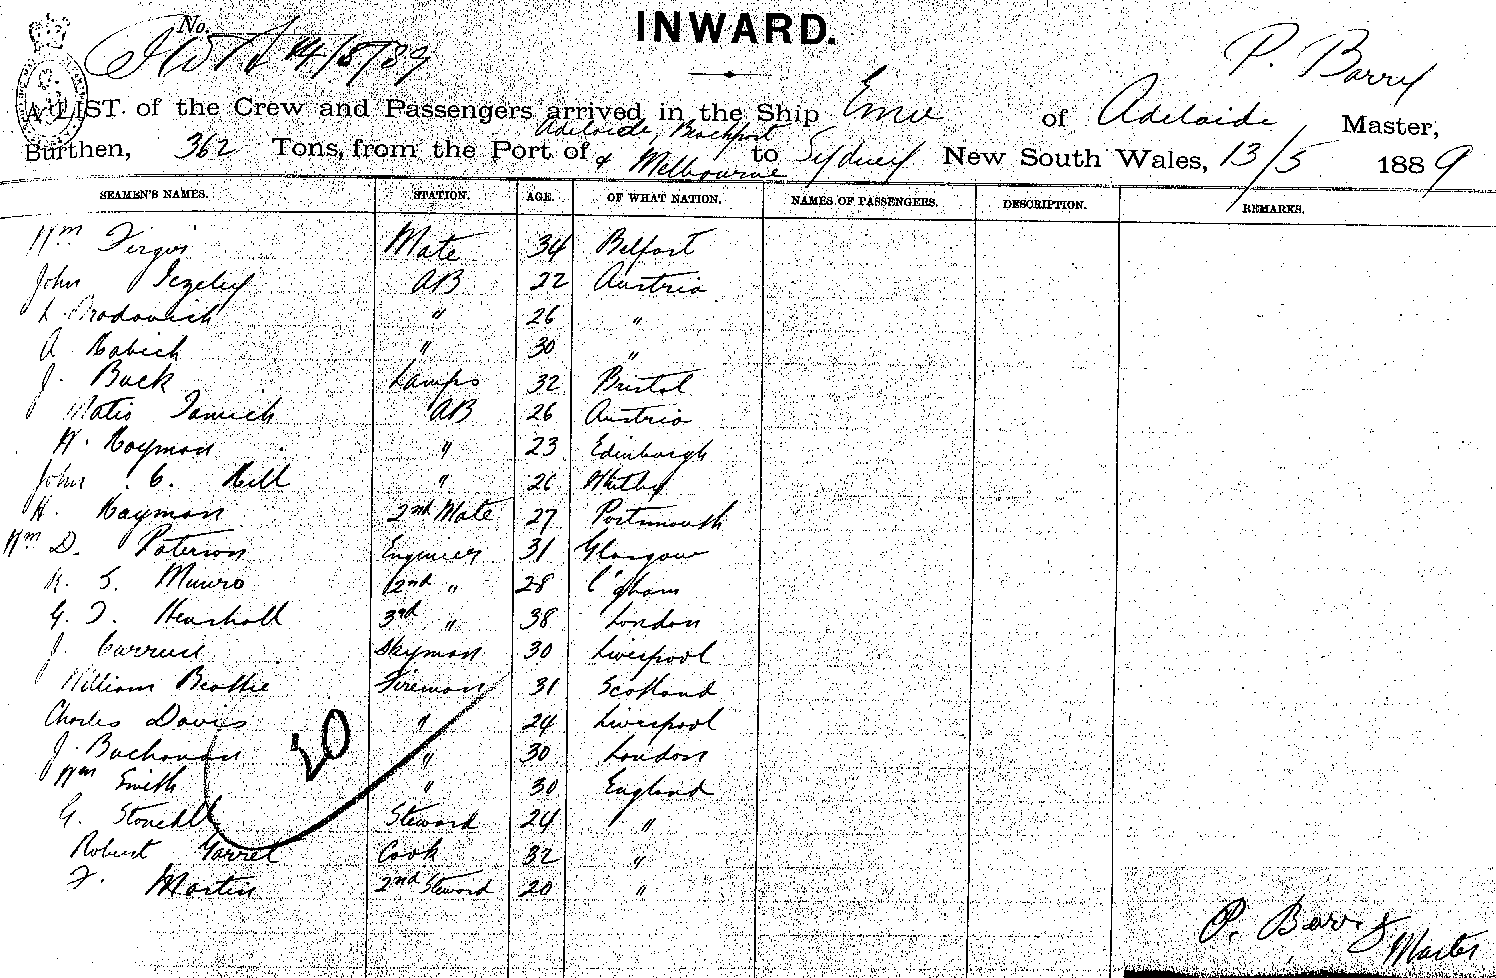 INWARD.
No. 14/5/89
P. Barry
A LIST of the Crew and Passengers arrived in the Ship Emu of Adelaide Master,
Adelaide, Beachport
Burthen, 362 Tons, from the Port of & Melbourne to Sydney New South Wales, 13/5 1889
SEAMEN'S NAMES. STATION. AGE. OF WHAT NATION. NAMES OF PASSENGERS. DESCRIPTION. REMARKS.
Wm Mate 34 Belfast
John AB 22 Austria
" 26 "
A " 30 "
J. Buck Lamps 32 Bristol
Matio AB 26 Austria
W. Hayman " 23 Edinburgh
John C. Hill " 26 Whitby
H. Hayman 2nd Mate 27 Portsmouth
Wm D. Paterson Engineer 31 Glasgow
S. Munro 2nd " 28
G. 3rd " 38 London
J. 30 Liverpool
William Beattie Fireman 31 Scotland
Charles Davis " 24 Liverpool
J. Buchanan " 30 London
Wm Smith " 30 England
20
G. Steward 24 "
Robert Garret Cook 32 "
Martin 2nd Steward 20 "
P. Barry
Master